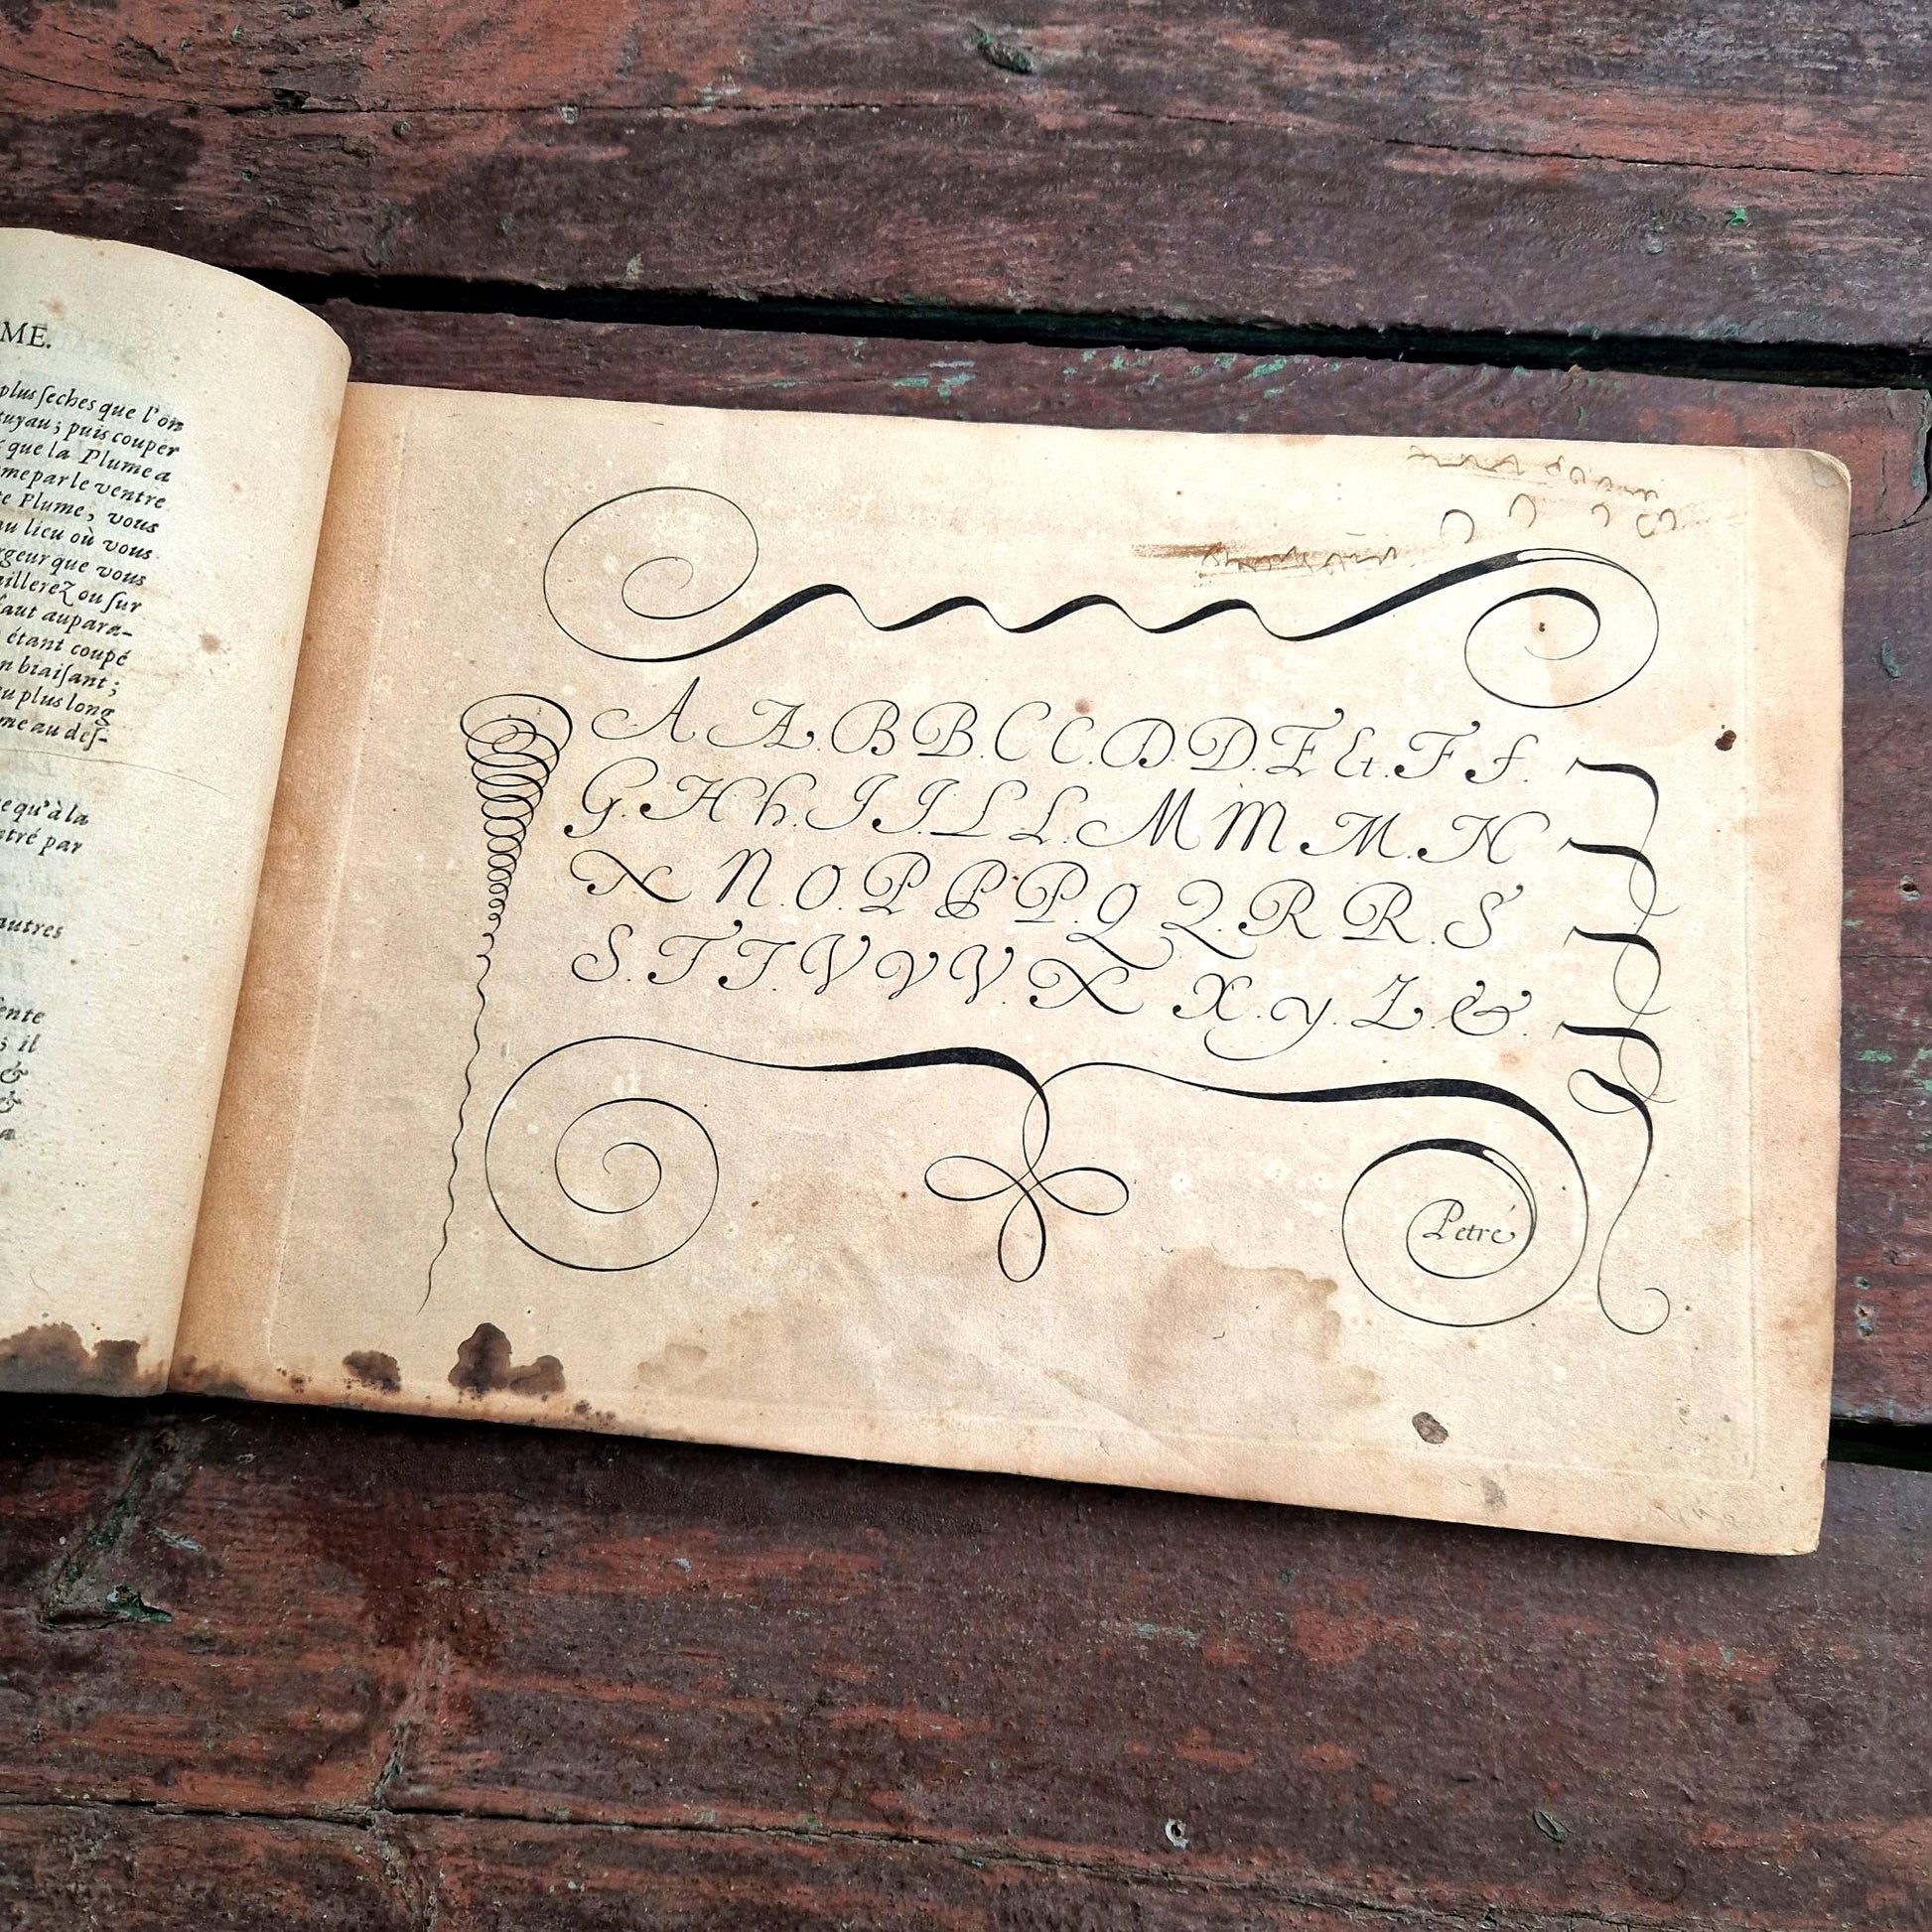 ME.
plus ſeches que l'on
tuyau ; puis couper
que la Plume a
me par le ventre
Plume, vous
au lieu où vous
rgeur que vous
aillerez ou ſur
faut aupara-
étant coupé
n biaiſant ;
u plus long
me au deſ-
e qu'à la
ntré par
autres
ente
; il
&
&
a
A A. B B. C C. D D. E &. F f.
G. H h. I I. L L. M M M. N
N N. O. P P P. Q Q. R R. S
S. T T. V V V. X X. y. Z. &.
Petré